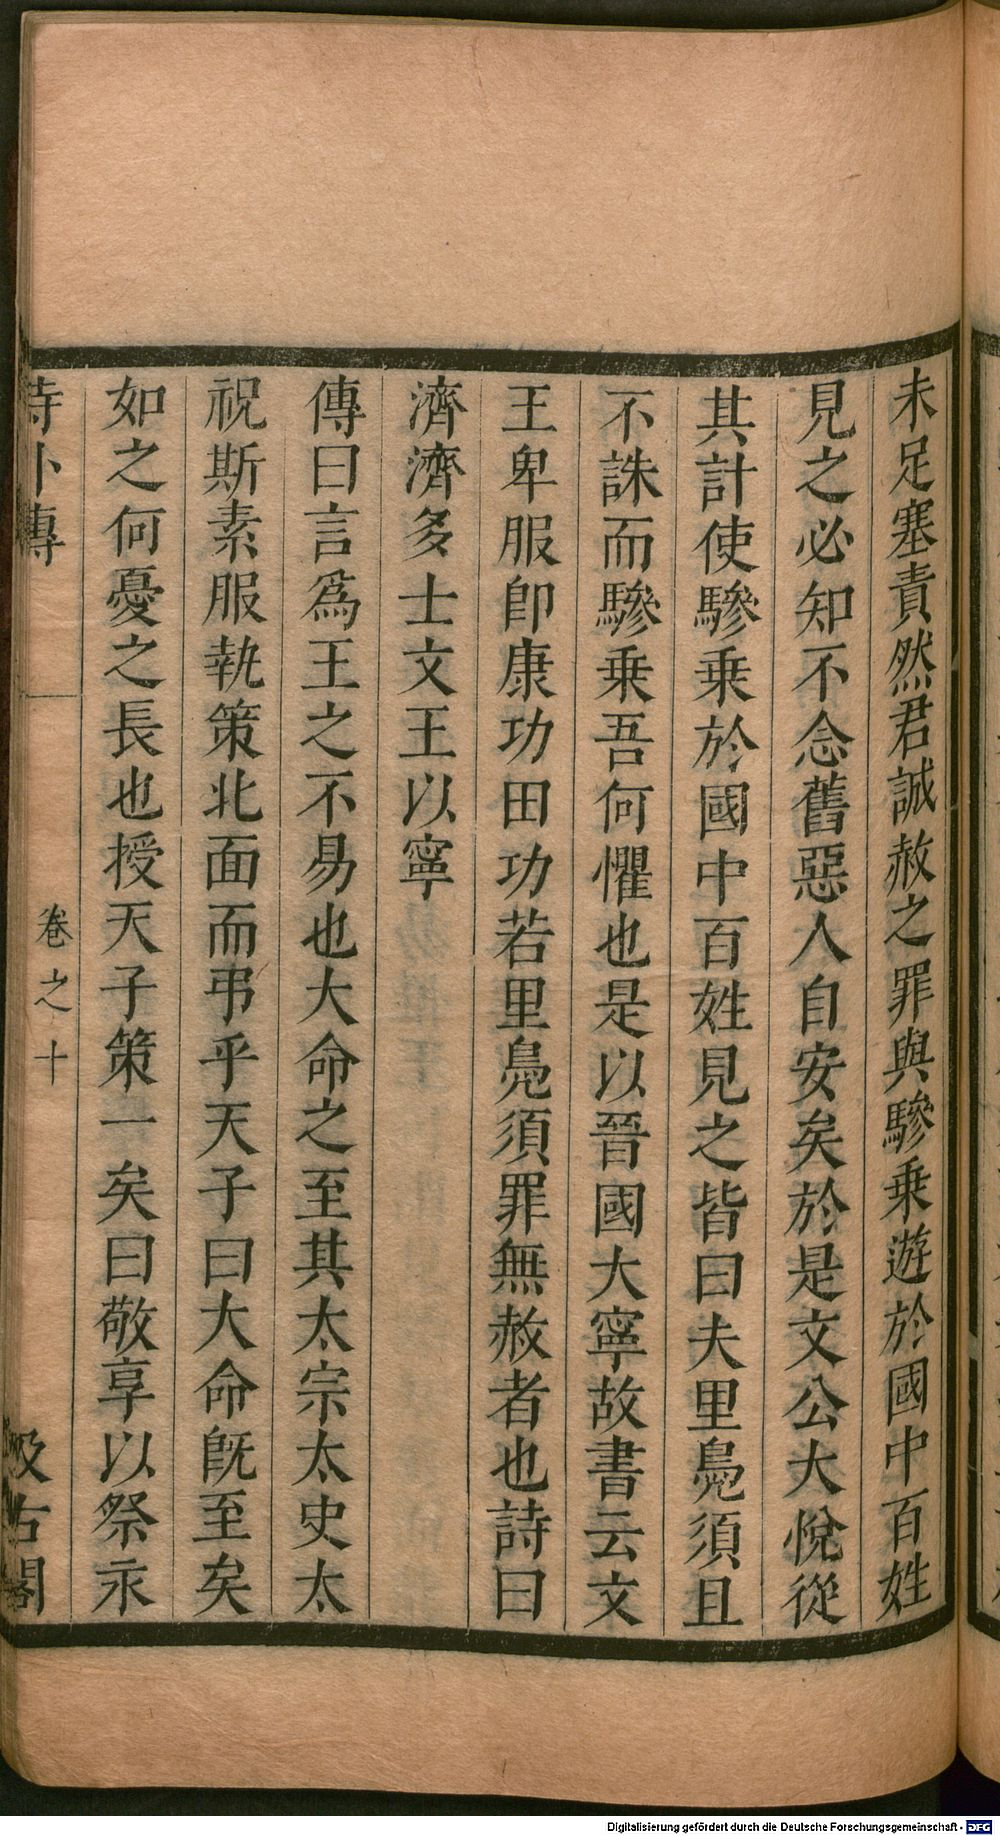 未足塞責然君誠赦之罪與驂乘遊於國中百姓
見之必知不念舊惡人自安矣於是文公大悅從
其計使驂乘於國中百姓見之皆曰夫里鳧須且
不誅而驂乘吾何懼也是以晉國大寧故書云文
王卑服卽康功田功若里鳧須罪無赦者也詩曰
濟濟多士文王以寧
傳曰言爲王之不易也大命之至其太宗太史太
祝斯素服執策北面而弔乎天子曰大命旣至矣
如之何憂之長也授天子策一矣曰敬享以祭永
詩卜傳 卷之十 汲古閣
Digitalisierung gefördert durch die Deutsche Forschungsgemeinschaft - DFG